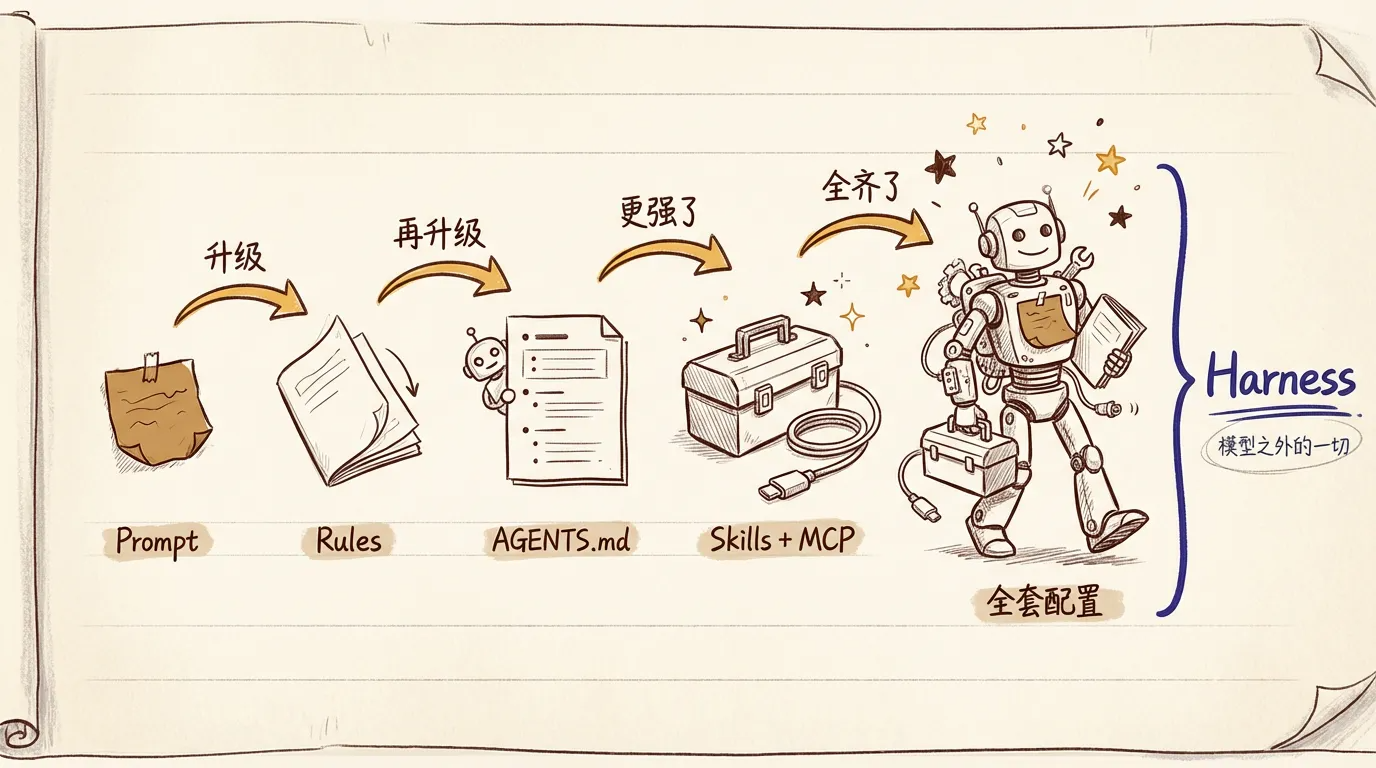 升级
再升级
更强了
全齐了
Prompt
Rules
AGENTS.md
Skills + MCP
全套配置
Harness
模型之外的一切